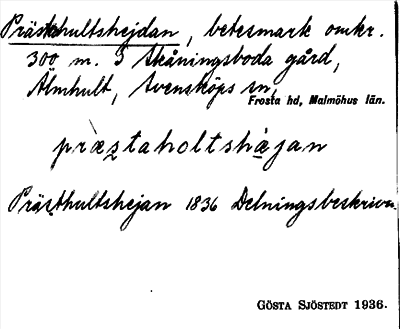 Prästhultshejdan, betesmark omkr.
300 m. S Skåningsboda gård,
Älmhult, Svensköps sn,
Frosta hd, Malmöhus län.
præstaholtshajan
Prästhultshejan 1836 Delningsbeskrivn.
GÖSTA SJÖSTEDT 1936.